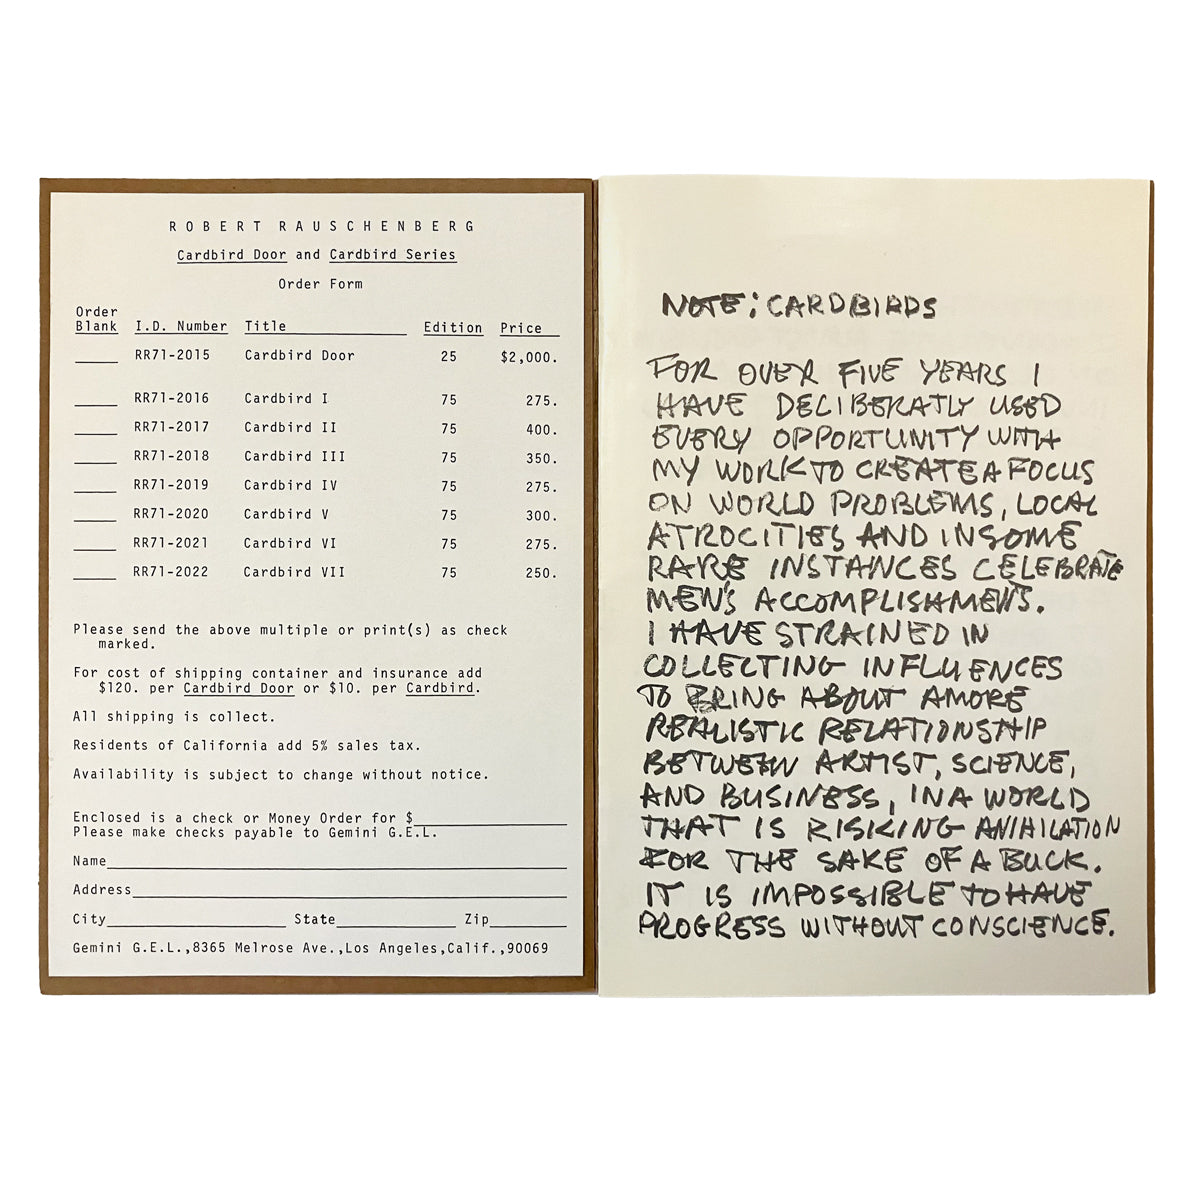 ROBERT RAUSCHENBERG
Cardbird Door and Cardbird Series
Order Form
Order
Blank I.D. Number Title Edition Price
RR71-2015 Cardbird Door 25 $2,000.
RR71-2016 Cardbird I 75 275.
RR71-2017 Cardbird II 75 400.
RR71-2018 Cardbird III 75 350.
RR71-2019 Cardbird IV 75 275.
RR71-2020 Cardbird V 75 300.
RR71-2021 Cardbird VI 75 275.
RR71-2022 Cardbird VII 75 250.
Please send the above multiple or print(s) as check
marked.
For cost of shipping container and insurance add
$120. per Cardbird Door or $10. per Cardbird.
All shipping is collect.
Residents of California add 5% sales tax.
Availability is subject to change without notice.
Enclosed is a check or Money Order for $
Please make checks payable to Gemini G.E.L.
Name
Address
City State Zip
Gemini G.E.L.,8365 Melrose Ave.,Los Angeles,Calif.,90069
NOTE; CARDBIRDS
FOR OVER FIVE YEARS I
HAVE DELIBERATLY USED
EVERY OPPORTUNITY WITH
MY WORK TO CREATE A FOCUS
ON WORLD PROBLEMS, LOCAL
ATROCITIES AND IN SOME
RARE INSTANCES CELEBRATE
MEN'S ACCOMPLISHMENTS.
I HAVE STRAINED IN
COLLECTING INFLUENCES
TO BRING ABOUT A MORE
REALISTIC RELATIONSHIP
BETWEEN ARTIST, SCIENCE,
AND BUSINESS, IN A WORLD
THAT IS RISKING ANIHILATION
FOR THE SAKE OF A BUCK.
IT IS IMPOSSIBLE TO HAVE
PROGRESS WITHOUT CONSCIENCE.